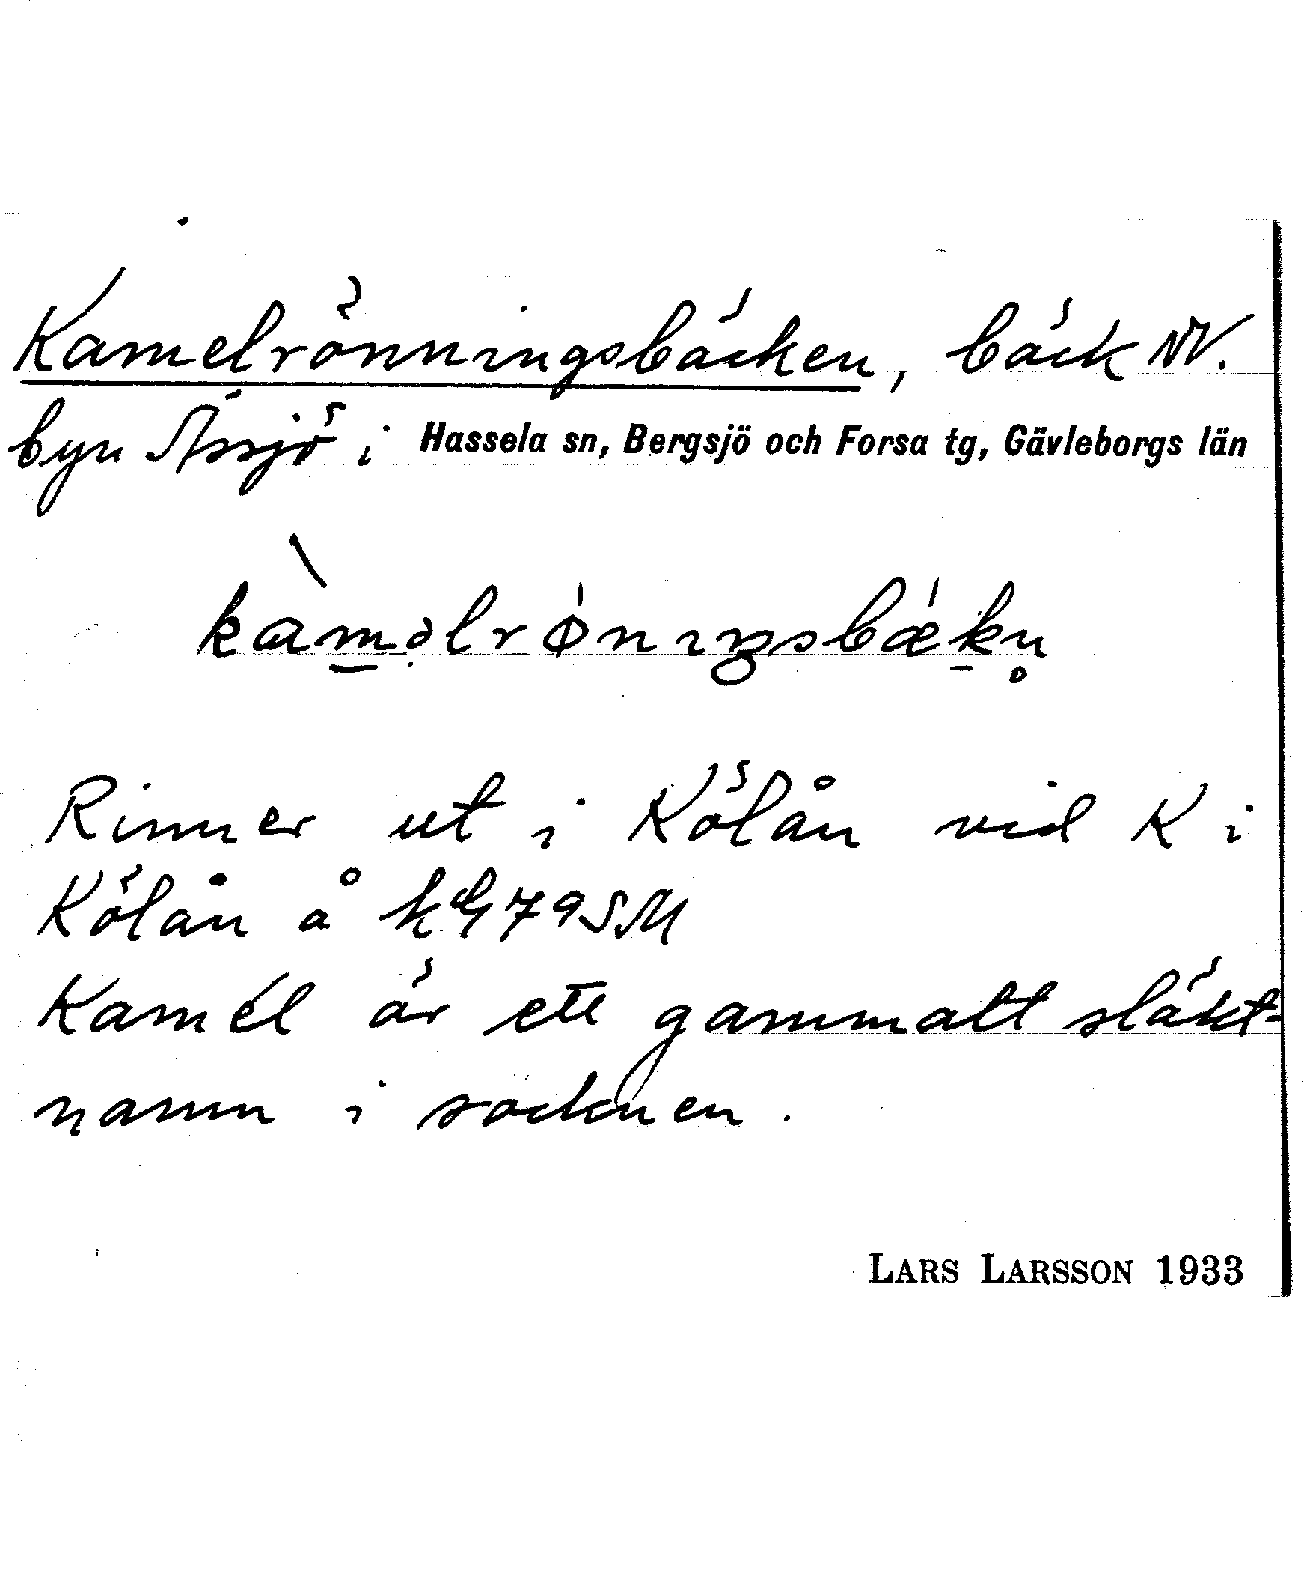 Kamelrönningsbäcken, bäck NV.
byn Ässjö i Hassela sn, Bergsjö och Forsa tg, Gävleborgs län
kàmәlrǿnıŋsbǽkn̥
Rinner ut i Kölån vid K i
Kölån å kG79SM
Kamél är ett gammalt släkt-
namn i socknen.
LARS LARSSON 1933